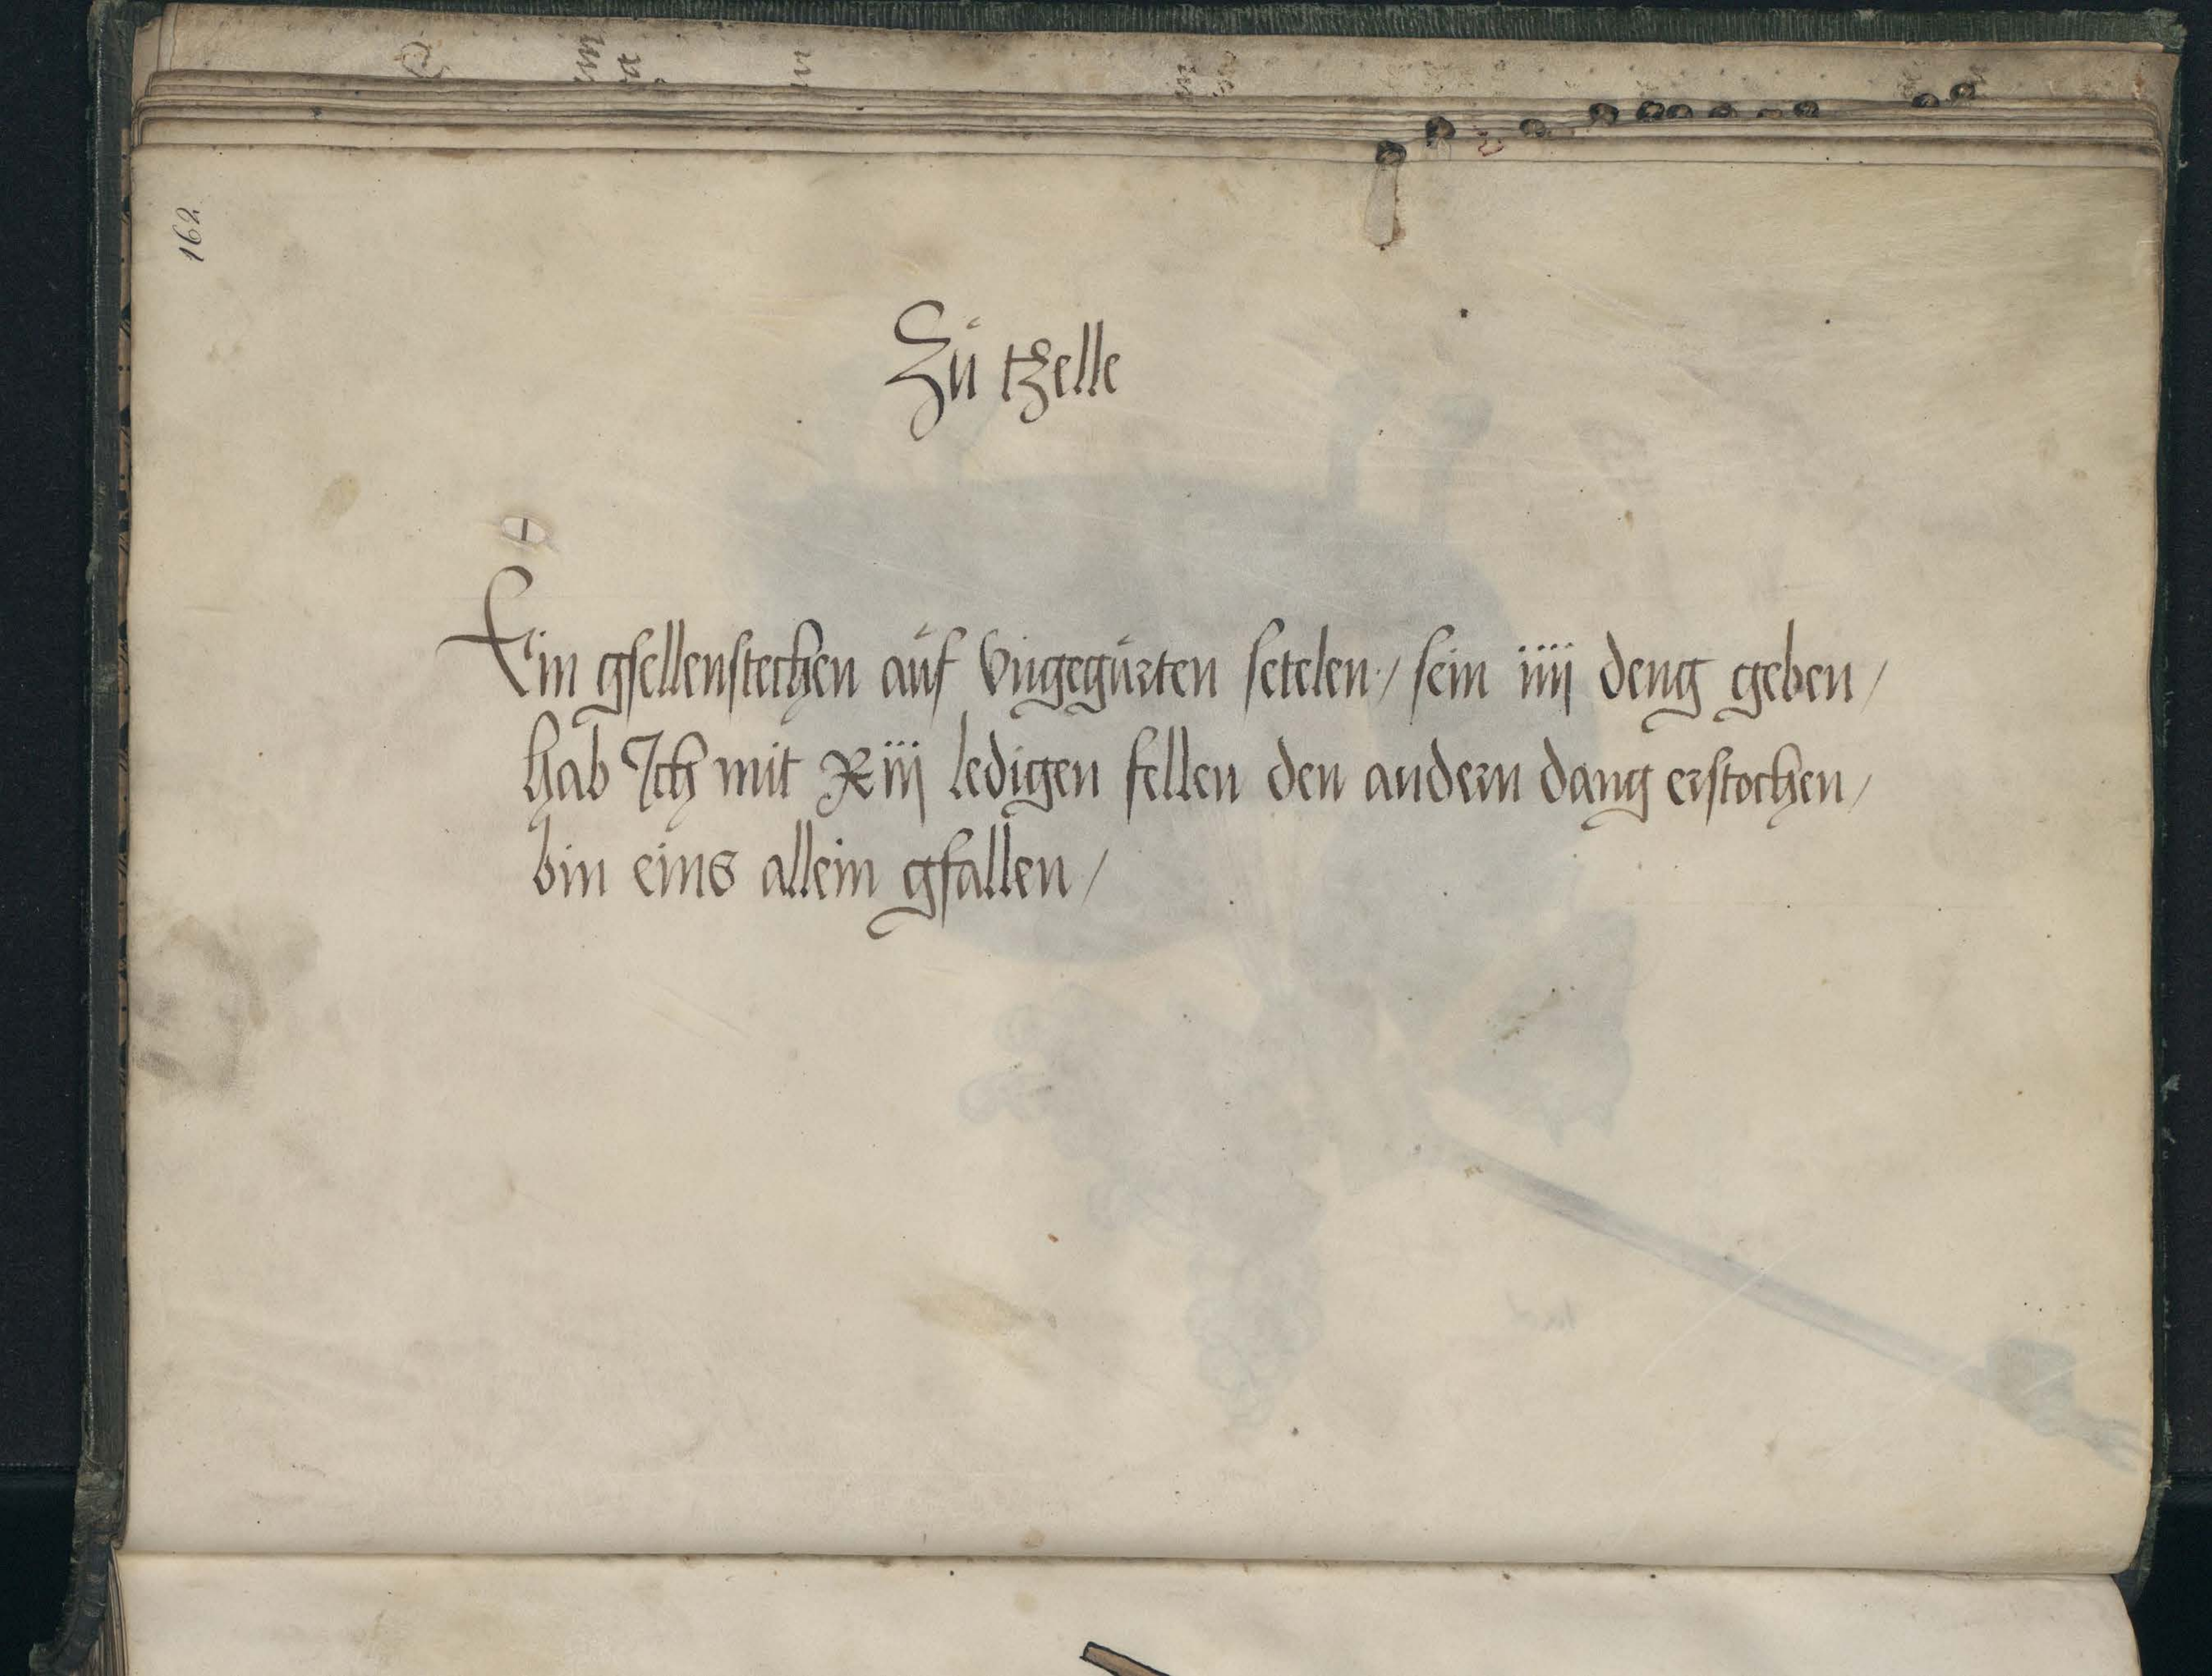 162
Zů tzelle
Ein gsellenstechen aůf vngegůrten setelen / sein iiij deng geben /
hab Ich mit Xiij ledigen fellen den andern dang erstochen /
bin eins allein gfallen /